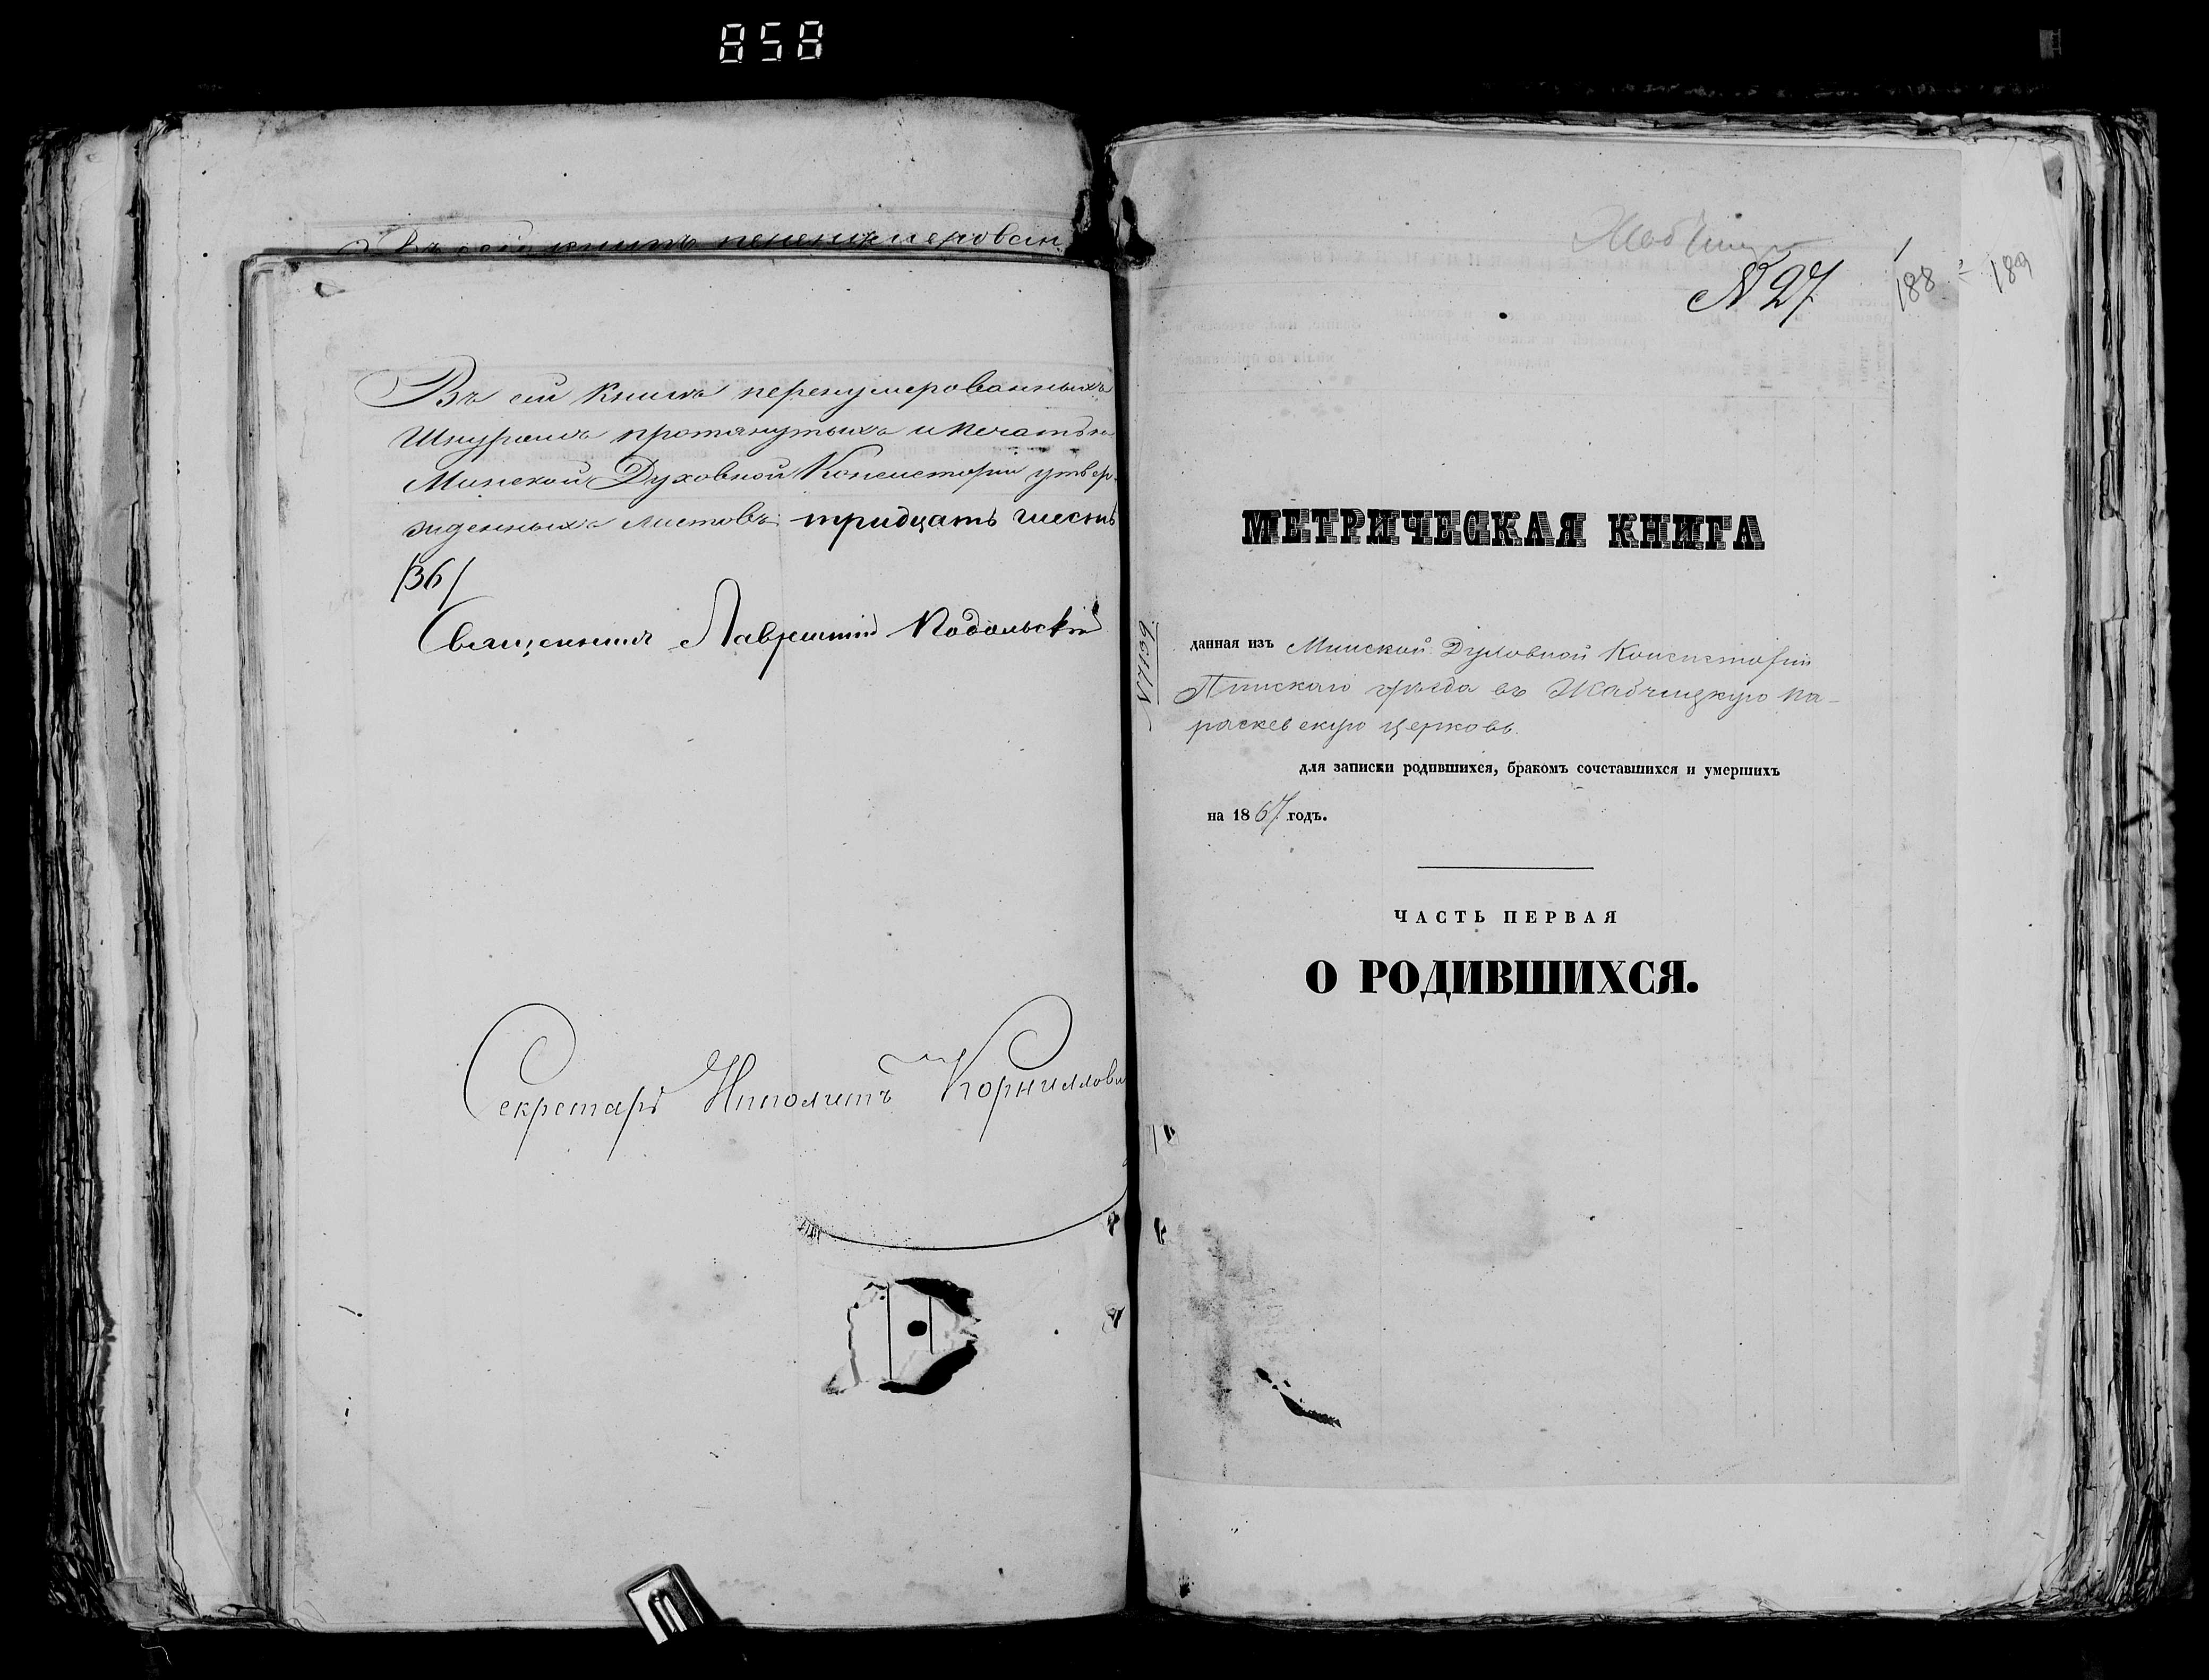 858
Въ сей книгѣ перенумерован
Въ сей книгѣ перенумерованныхъ
Шнуромъ протянутыхъ и печатью
Минской Духовной Консисторіи утвер-
жденныхъ листовъ тридцать шесть
/36/
Священникъ Лаврентій Подольскій
Секретарь Ипполитъ Корнилови
N 27
1
188
189
МЕТРИЧЕСКАЯ КНИГА
N 7139.
данная изъ Минской Духовной Консисторіи
Пинскаго уѣзда въ Жабчицкую Па-
раскевскую церковь.
для записки родившихся, бракомъ сочетавшихся и умершихъ
на 1867 годъ.
ЧАСТЬ ПЕРВАЯ
О РОДИВШИХСЯ.